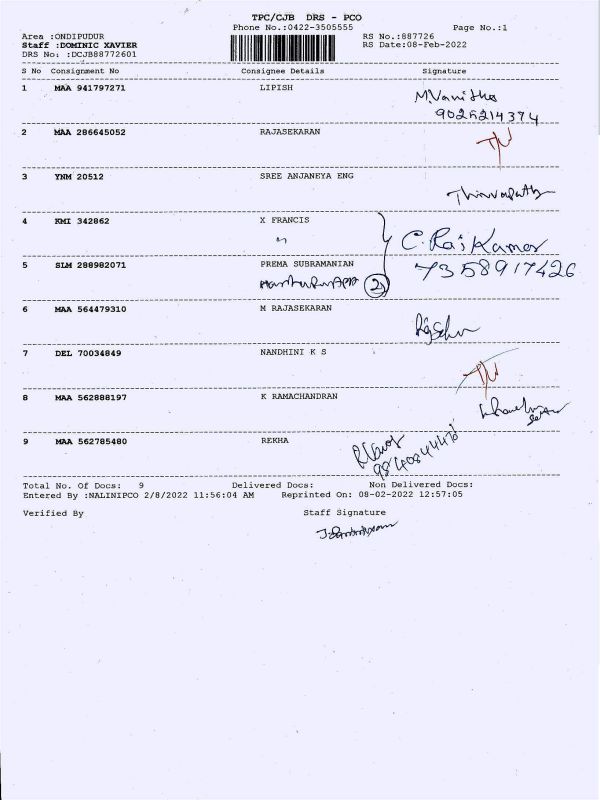 TPC/CJB DRS - PCO
Phone No.:0422-3505555 Page No.:1
Area :ONDIPUDUR RS No.:887726
Staff :DOMINIC XAVIER RS Date:08-Feb-2022
DRS No: :DCJB88772601
S No Consignment No Consignee Details Signature
1 MAA 941797271 LIPISH M.Vanitha
9026214374
2 MAA 286645052 RAJASEKARAN
3 YNM 20512 SREE ANJANEYA ENG
4 KMI 342862 X FRANCIS C. Raj Kumar
7358917426
5 SLM 288982071 PREMA SUBRAMANIAN
2
6 MAA 564479310 M RAJASEKARAN
7 DEL 70034849 NANDHINI K S
8 MAA 562888197 K RAMACHANDRAN
9 MAA 562785480 REKHA
Total No. Of Docs: 9 Delivered Docs: Non Delivered Docs:
Entered By :NALINIPCO 2/8/2022 11:56:04 AM Reprinted On: 08-02-2022 12:57:05
Verified By Staff Signature